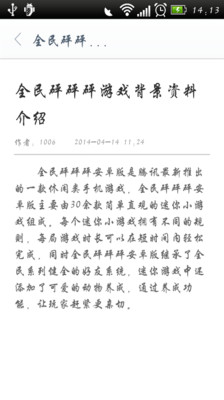 14:13
全民砰砰...
全民砰砰砰游戏背景资料
介绍
作者：1006 2014-04-14 11,24
全民砰砰砰安卓版是腾讯最新推出
的一款休闲类手机游戏，全民砰砰砰安
卓版主要由30余款简单直观的迷你小游
戏组成。每个迷你小游戏拥有不同的规
则，每局游戏时长可以在短时间内轻松
完成，同时全民砰砰砰安卓版继承了全
民系列健全的好友系统，迷你游戏中还
添加了可爱的动物养成，通过养成功
能，让玩家赶紧更亲切。